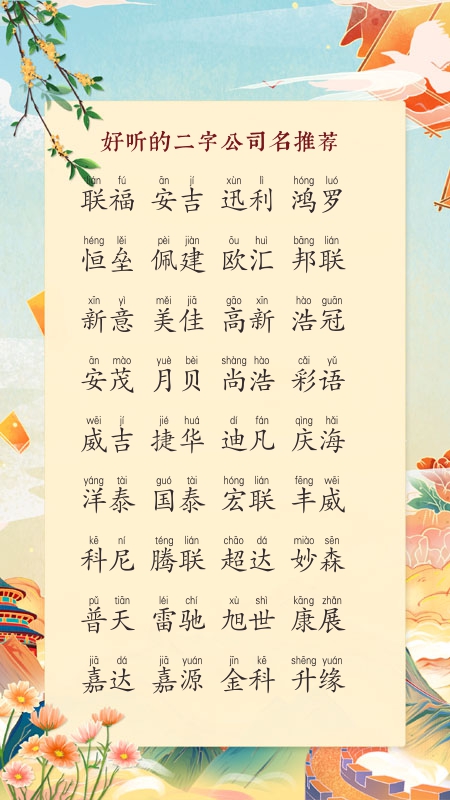 好听的二字公司名推荐
lián fú ān jí xùn lì hóng luó
联福 安吉 迅利 鸿罗
héng lěi pèi jiàn ōu huì bāng lián
恒垒 佩建 欧汇 邦联
xīn yì měi jiā gāo xīn hào guān
新意 美佳 高新 浩冠
ān mào yuè bèi shàng hào cǎi yǔ
安茂 月贝 尚浩 彩语
wēi jí jié huá dí fán qìng hǎi
威吉 捷华 迪凡 庆海
yáng tài guó tài hóng lián fēng wēi
洋泰 国泰 宏联 丰威
kē ní téng lián chāo dá miào sēn
科尼 腾联 超达 妙森
pǔ tiān léi chí xù shì kāng zhǎn
普天 雷驰 旭世 康展
jiā dá jiā yuán jīn kē shēng yuán
嘉达 嘉源 金科 升缘